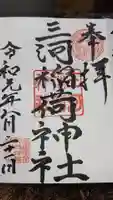 奉拝
三河稲荷神社
令和元年八月二十一日